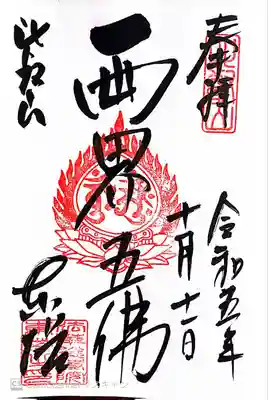 奉拝
令和五年
十月十一日
両界五佛
比叡山
東塔